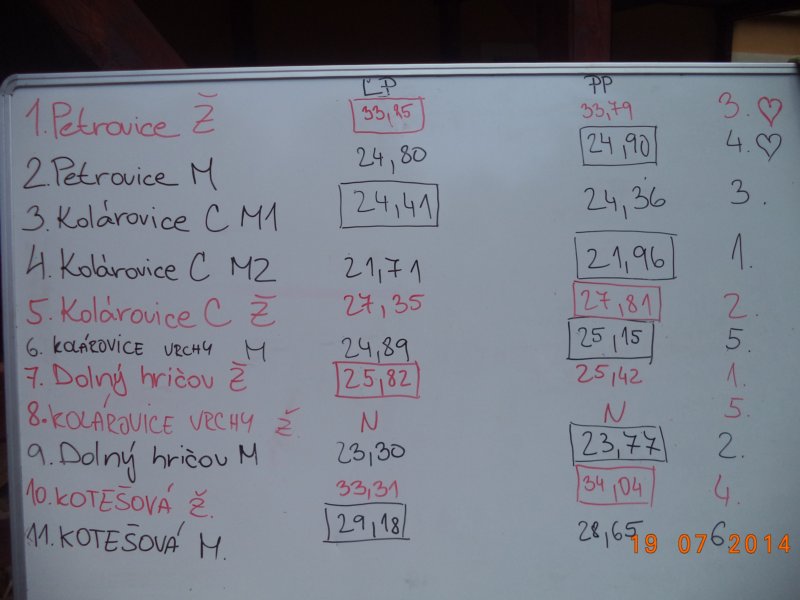 ĽP PP
1. Petrovice Ž 33,85 33,79 3. ♡
2. Petrovice M 24,80 24,90 4. ♡
3. Kolárovice C M1 24,41 24,36 3.
4. Kolárovice C M2 21,71 21,96 1.
5. Kolárovice C Ž 27,35 27,81 2.
6. KOLÁROVICE VRCHY M 24,89 25,15 5.
7. Dolný hričov Ž 25,82 25,42 1.
8. KOLÁROVICE VRCHY Ž N N 5.
9. Dolný hričov M 23,30 23,77 2.
10. KOTEŠOVÁ Ž. 33,31 34,04 4.
11. KOTEŠOVÁ M. 29,18 28,65 6
19 07 2014